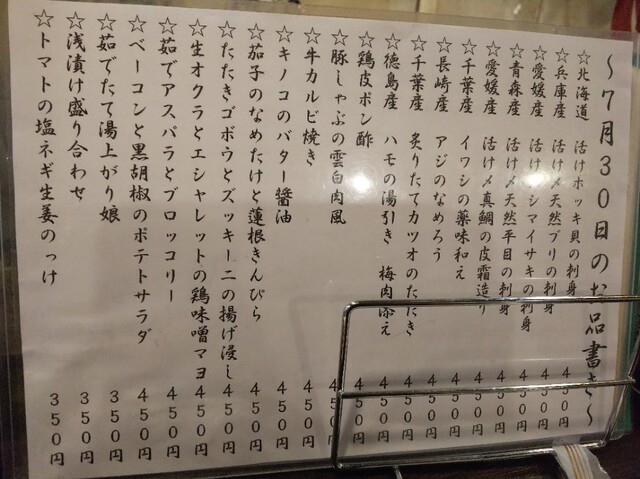 ～7月30日のお品書き～
☆北海道 活けホッキ貝の刺身 450円
☆兵庫産 活け〆天然ブリの刺身 450円
☆愛媛産 活け〆シマイサキの刺身 450円
☆青森産 活け〆天然平目の刺身 450円
☆愛媛産 活け〆真鯛の皮霜造り 450円
☆千葉産 イワシの薬味和え 450円
☆長崎産 アジのなめろう 450円
☆千葉産 炙りたてカツオのたたき 450円
☆徳島産 ハモの湯引き 梅肉添え 450円
☆鶏皮ポン酢 450円
☆豚しゃぶの雲白肉風 450円
☆牛カルビ焼き 450円
☆キノコのバター醤油 450円
☆茄子のなめたけと蓮根きんぴら 450円
☆たたきゴボウとズッキーニの揚げ浸し 450円
☆生オクラとエシャレットの鶏味噌マヨ 450円
☆茹でアスパラとブロッコリー 450円
☆ベーコンと黒胡椒のポテトサラダ 450円
☆茹でたて湯上がり娘 350円
☆浅漬け盛り合わせ 350円
☆トマトの塩ネギ生姜のっけ 350円